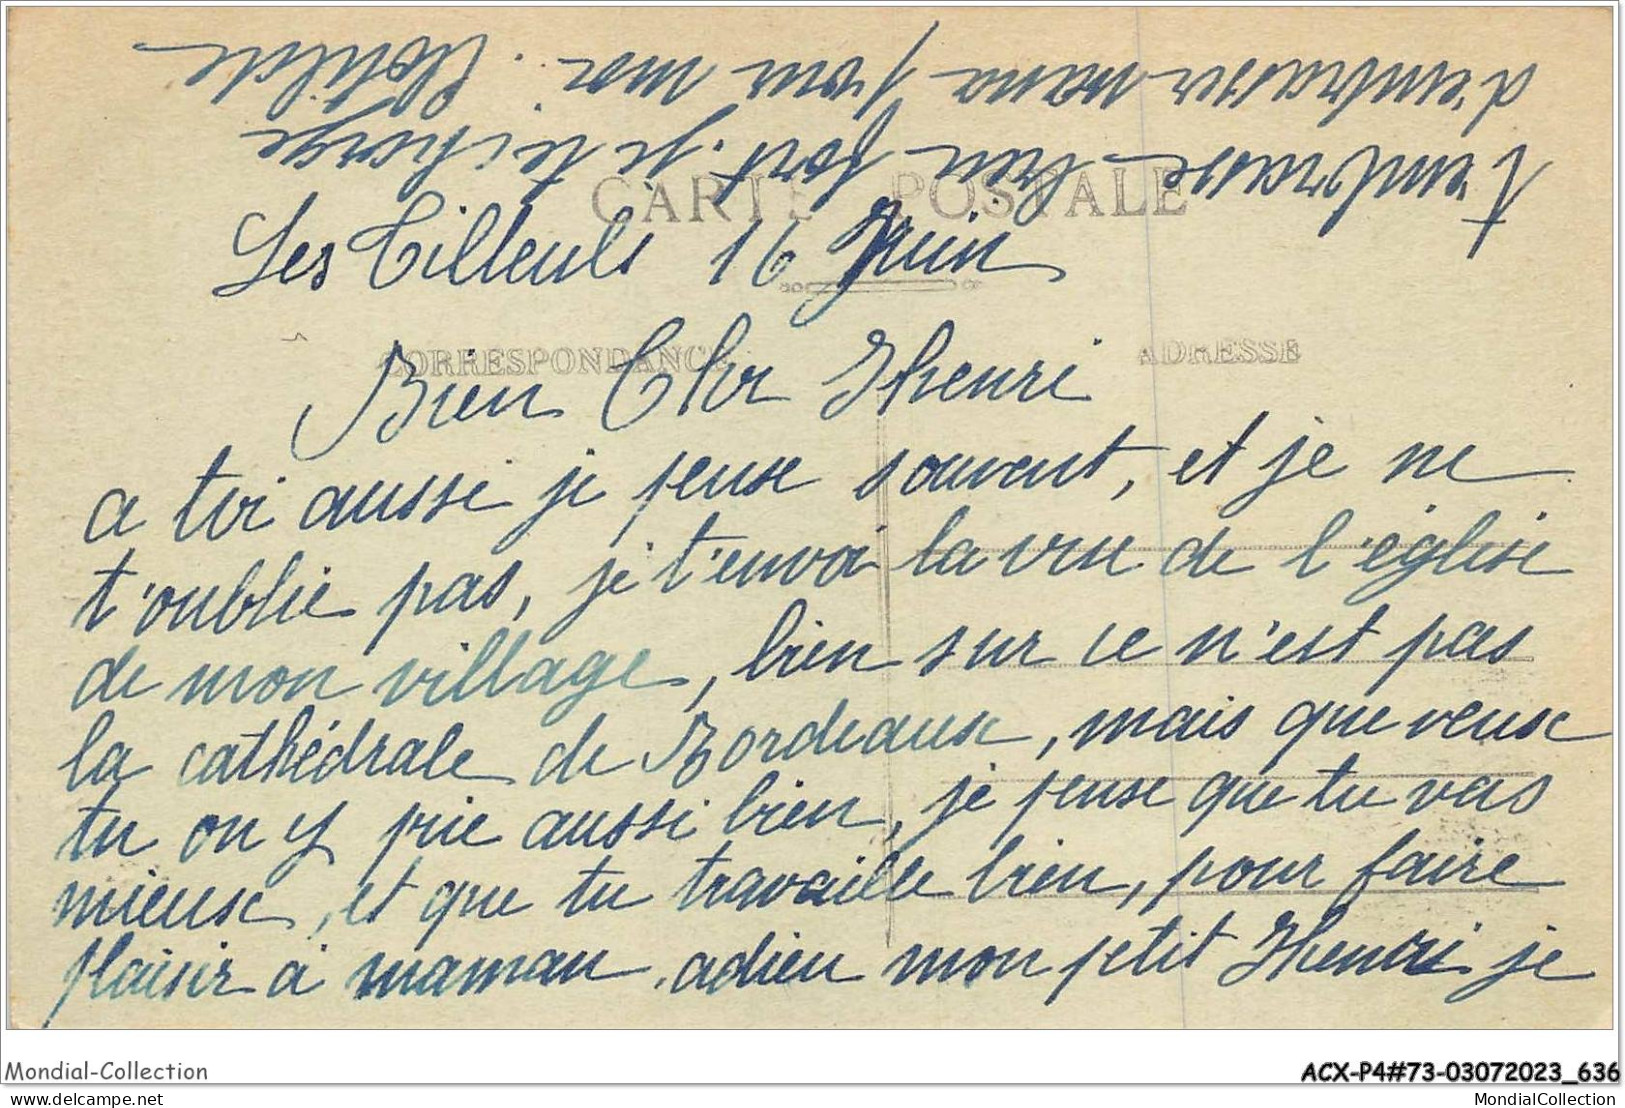 CARTE POSTALE
CORRESPONDANCE
ADRESSE
Les Tilleuls 16 Juin
Bien Cher Henri
a toi aussi je pense souvent, et je ne
t'oublie pas, je t'envoi la vue de l'église
de mon village, bien sur ce n'est pas
la cathédrale de Bordeaux, mais que veux
tu on y prie aussi bien, je pense que tu vas
mieux, et que tu travaille bien, pour faire
plaisir à maman, adieu mon petit Henri je
t'embrasse bien fort. je te charge
d'embrasser mama pour moi. Clotilde
Mondial-Collection
ACX-P4#73-03072023_636
delcampe.net
MondialCollection